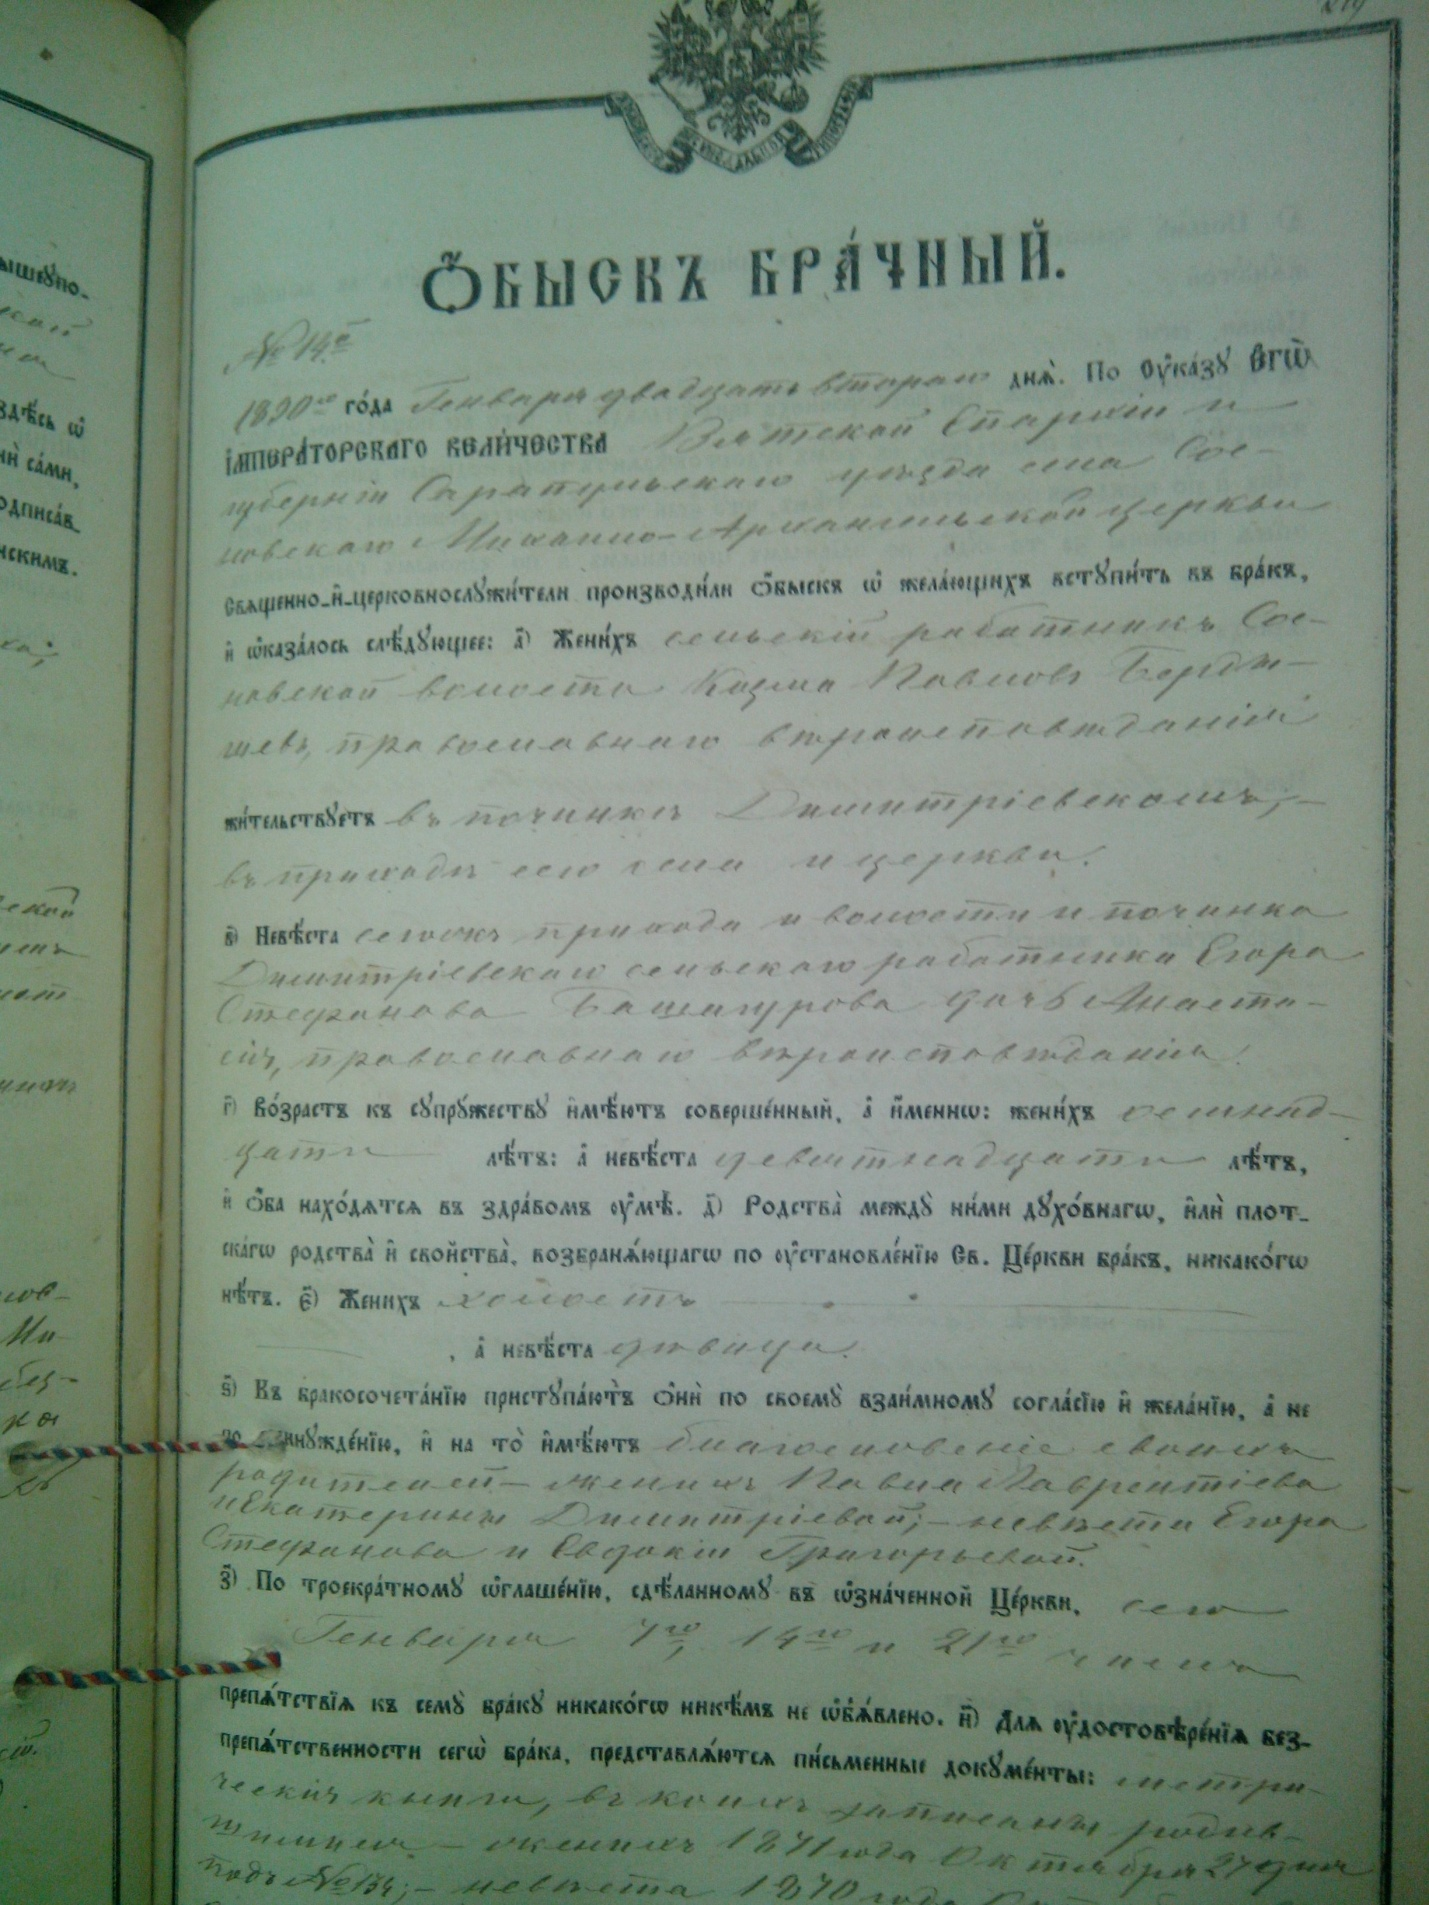 Ѻ҆БЫСКЪ БРА́ЧНЫЙ.
№ 14й
1890го го́да Генваря двадцать втораго днѧ̀. По Оу҆ка́зу Е҆гѡ̀
І҆мпера́торскаго вели́чества Вятской Епархіи и
губерніи Сарапульскаго уѣзда села Сос-
новскаго Михаило-Архангельской церкви
Свѧщенно-и҆-церковнослужи́тели производи́ли ѻ҆́быскъ ѡ҆ жела́ющихъ вступи́ть въ бра́къ,
и҆ ѡ҆каза́лось слѣ́дующее: а҃) Жени́хъ сельскій работникъ Сос-
новской волости Козма Павловъ Берды-
шевъ, православнаго вѣроисповѣданія
жи́тельствуетъ въ починкѣ Димитріевскомъ,
въ приходѣ сего села и церкви.
в҃) Невѣ́ста сегожъ прихода и волости и починка
Димитріевскаго сельскаго работника Егора
Стефанова Башегурова дочь Анаста-
сія, православнаго вѣроисповѣданія.
г҃) Во́зрастъ къ супру́жеству и҆мѣ́ютъ соверше́нный, а҆ и҆́меннѡ: жени́хъ осьмнад-
цати лѣ́тъ: а҆ невѣ́ста девятнадцати лѣ́тъ,
и҆ ѻ҆́ба нахо́дѧтсѧ въ здра́вомъ оу҆мѣ̀. д҃) Родства̀ между̀ ни́ми духо́внагѡ, и҆лѝ плот-
ска́гѡ родства̀ и҆ свойства̀, возбранѧ́ющагѡ по оу҆становле́нїю Св. Це́ркви бра́къ, никако́гѡ
нѣ́тъ. є҃) Женихъ холостъ
, а҆ невѣ́ста дѣвица.
ѕ҃) Къ бракосочета́нїю приступа́ютъ ѻ҆нѝ по своемѹ̀ взаи́мному согла́сїю и҆ жела́нїю, а҆ не
по принужде́нїю, и҆ на то̀ и҆мѣ́ютъ благословеніе своихъ
родителей – женихъ Павла Лаврентіева
и Екатерины Димитріевой; – невѣста Егора
Стефанова и Евдокіи Григорьевой.
з҃) По троекра́тному ѡ҆глаше́нїю, сдѣ́ланному въ ѡ҆зна́ченной Це́ркви, сего
Генваря 7го, 14го и 21го числъ
препѧ́тствїѧ къ сему̀ бра́ку никако́гѡ никѣ́мъ не ѡ҆б̾ѧ́влено. и҃) Длѧ оу҆достовѣре́нїѧ без-
препѧ́тственности сегѡ̀ бра́ка, представлѧ́ютсѧ пи́сьменные докуме́нты: метри-
ческія книги, въ коихъ записаны родив-
шимися – женихъ 1871 года Октября 27 дня
подъ № 134; – невѣста 1870 года